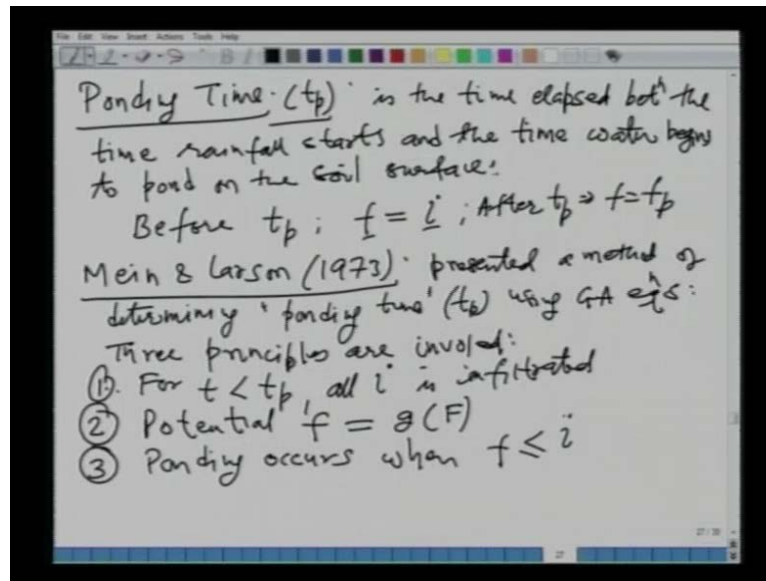 File Edit View Insert Actions Tools Help
Ponding Time (tp) is the time elapsed betn the
time rainfall starts and the time water begins
to pond on the soil surface.
Before tp; f = i ; After tp ⇒ f = fp
Mein & Larson (1973) presented a method of
determining 'ponding time' (tp) using GA eqns:
Three principles are involved:
(1) For t < tp, all i is infiltrated
(2) Potential f = g(F)
(3) Ponding occurs when f ≤ i
27